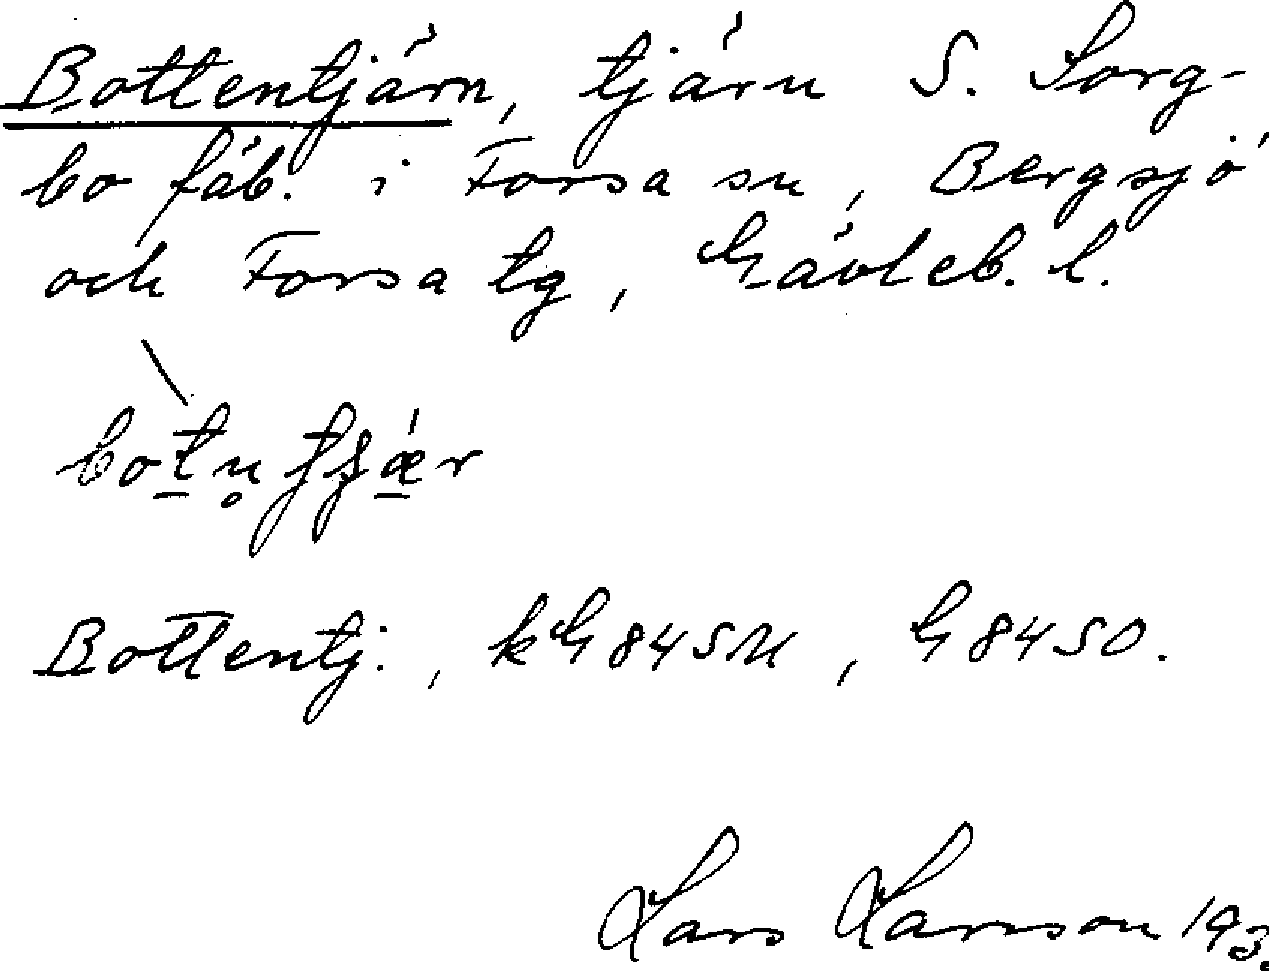 Bottentjärn, tjärn S. Sörg-
bo fäb. i Forsa sn, Bergsjö
och Forsa tg, Gävleb. l.
Bottentj., kG84SU, G84SO.
Lars Larsson 193